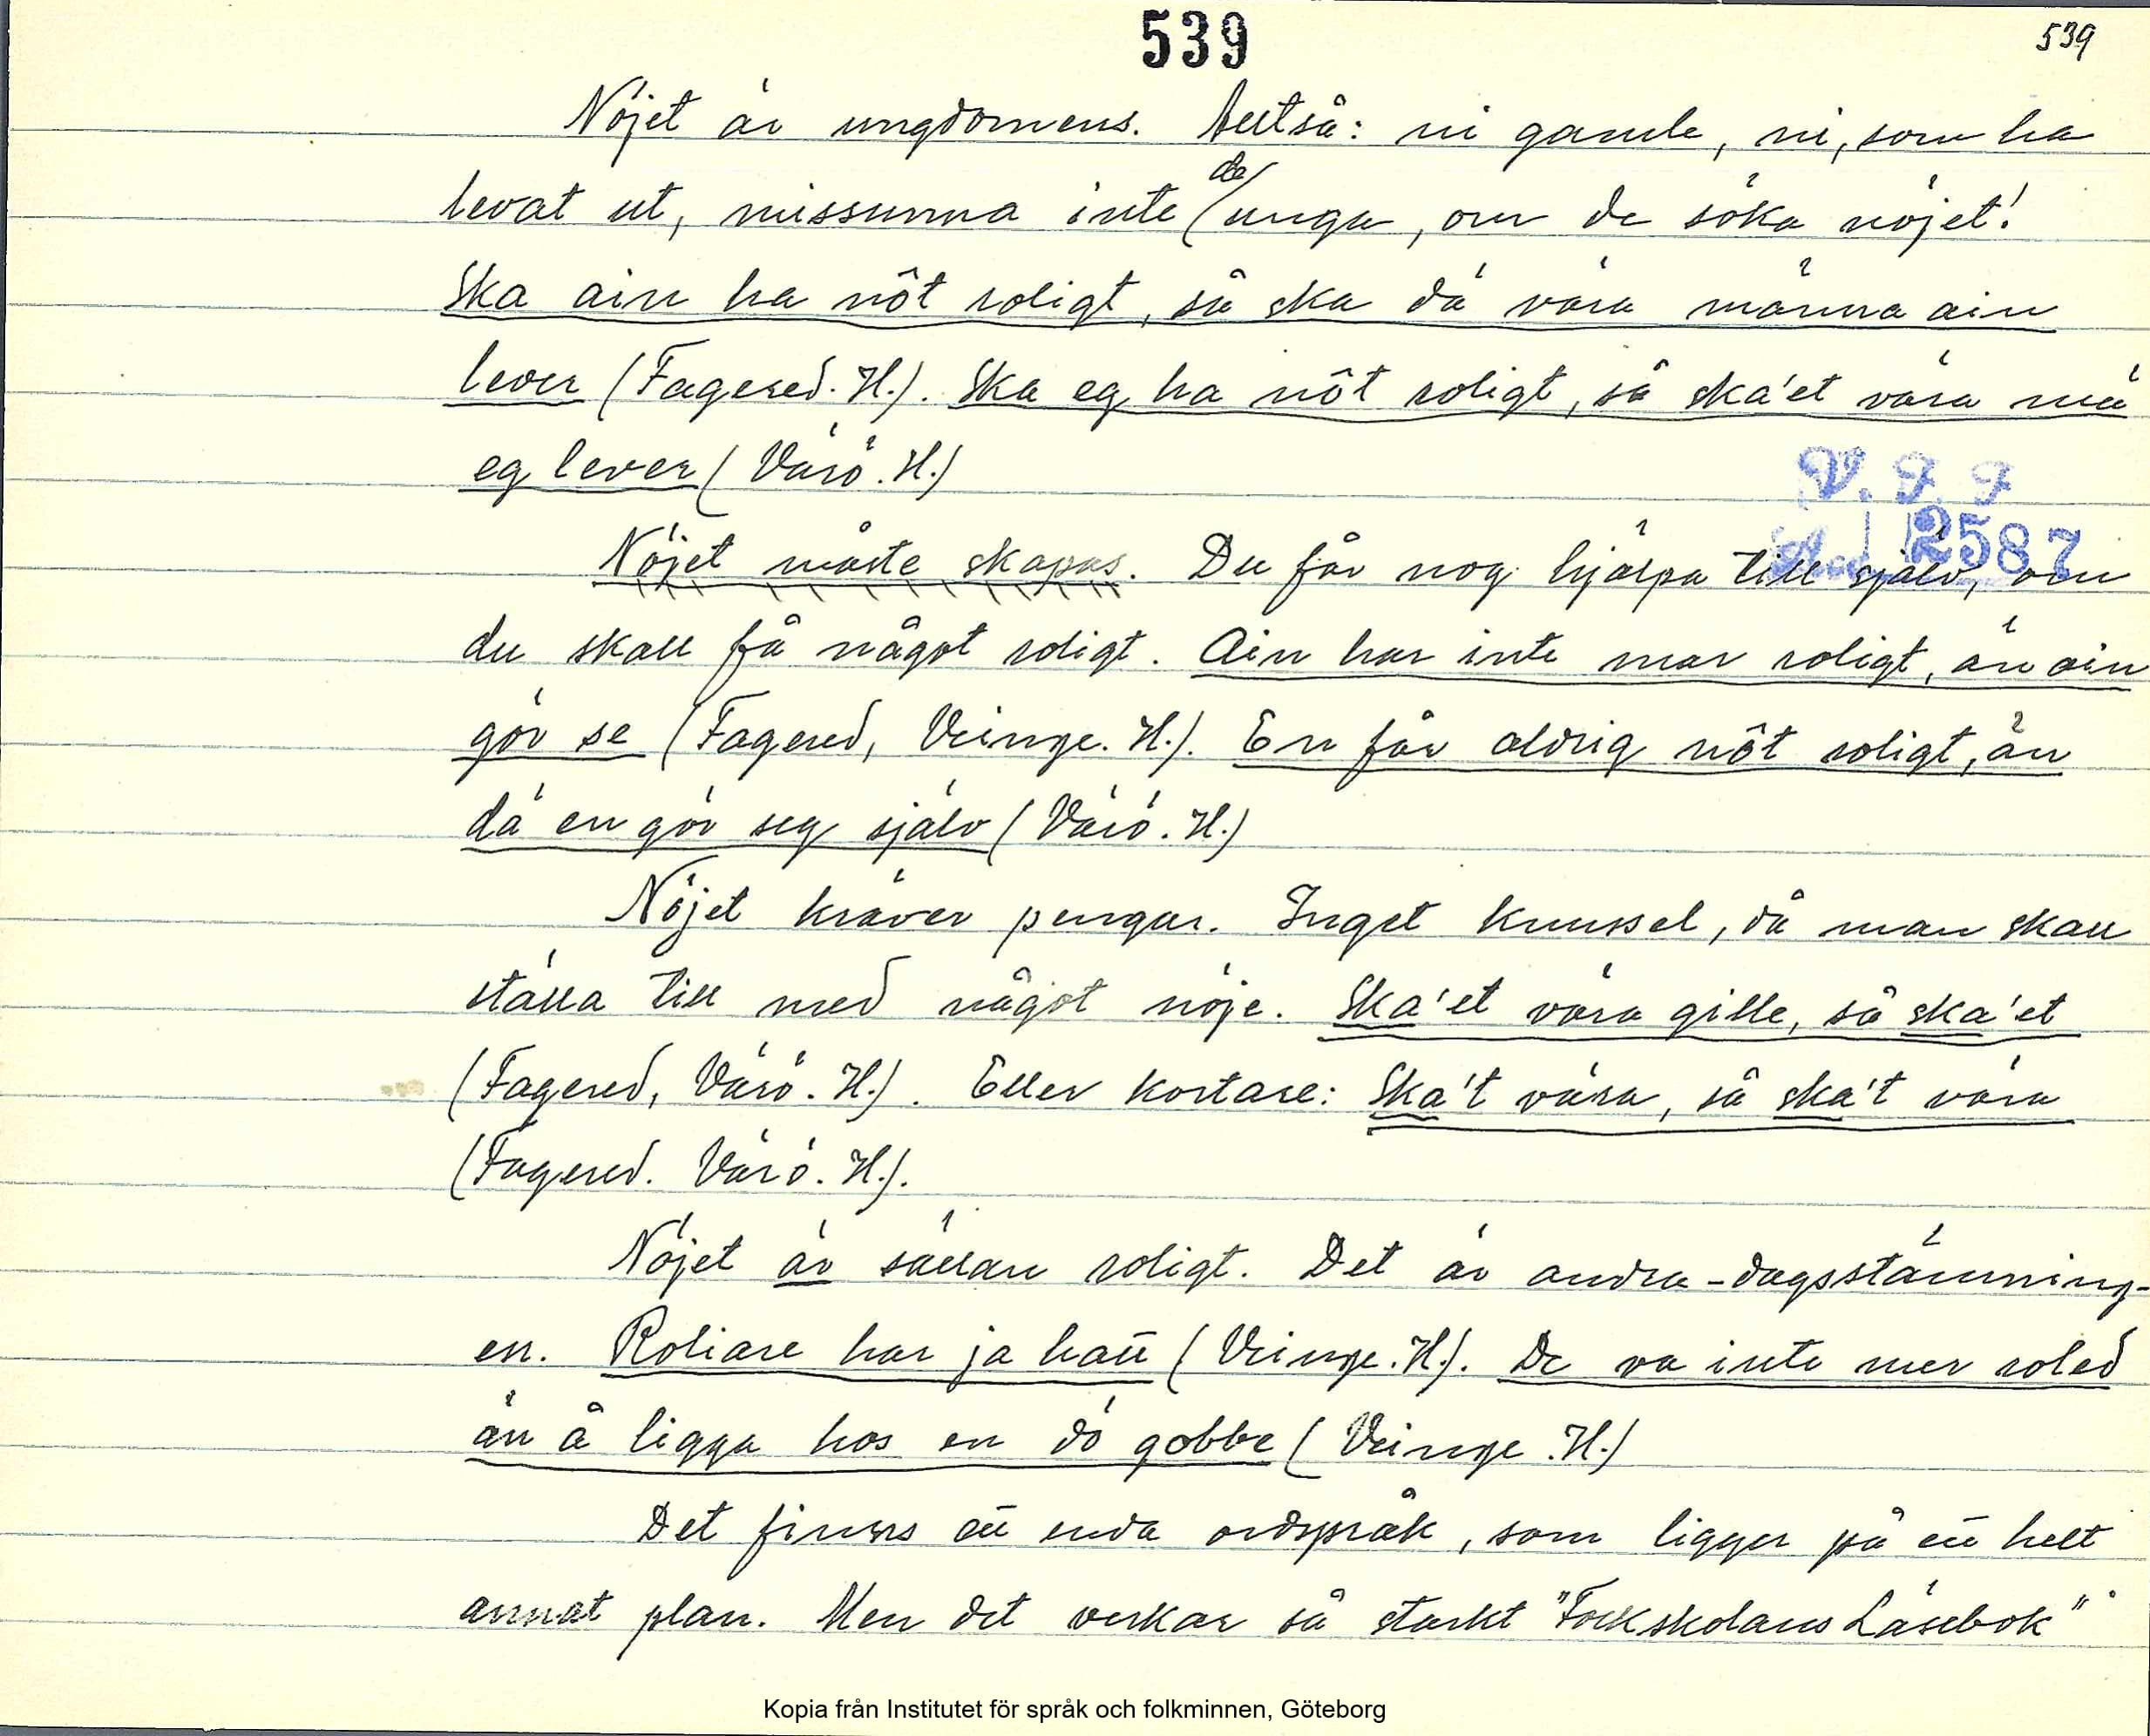 539
539
Nöjet är ungdomens. Alltså: ni gamle, ni, som ha
de
levat ut, missunna inte unga, om de söka nöjet!
Ska ain ha nôt roligt, så ska dä vära männa ain
lever (Fagered. H.). Ska eg ha nôt roligt, så ska'et vära mä
eg lever (Värö. H.)
V. F. F
Acc 2587
Nöjet måste skapas. Du får nog hjälpa till själv, om
du skall få något roligt. Ain har inte mar roligt, än ain
gör se (Fagered, Veinge. H.). En får aldrig nôt roligt, än
dä en gör seg själv (Värö. H.)
Nöjet kräver pengar. Inget knussel, då man skall
ställa till med något nöje. Ska'et vära gille, så ska'et
(Fagered, Värö. H.). Eller kortare: Ska't vära, så ska't vära
(Fagered. Värö. H.).
Nöjet är sällan roligt. Det är andra-dagsstämning-
en. Roliare har ja hatt (Veinge. H.). De va inte mer roled
än å ligga hos en dö gobbe (Veinge. H.)
Det finns ett enda ordspråk, som ligger på ett helt
annat plan. Men det verkar så starkt "Folkskolans Läsebok"
Kopia från Institutet för språk och folkminnen, Göteborg